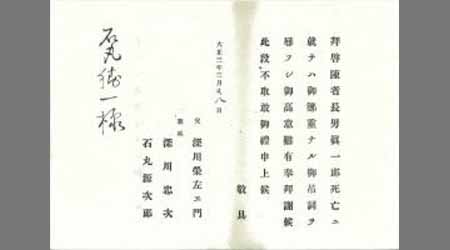 拜啓陳者長男眞一郎死亡ニ
就テハ御鄭重ナル御吊詞ヲ
辱フシ御高意難有奉拜謝候
此段不取敢御禮申上候
敬具
大正三年三月 八日
父 深川榮左エ門
親戚 深川忠次
石丸源次郎
石丸 一様